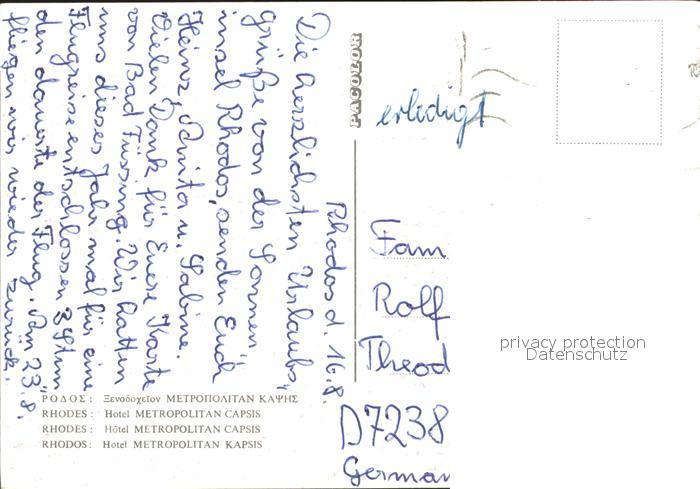 Rhodos d. 16.8.
Die herzlichsten Urlaubs„
grüße von der Sonnen„
insel Rhodos, senden Euch
Heinz, Anita u. Sabine.
Vielen Dank für Euere Karte
von Bad Füssing. Wir hatten
uns dieses Jahr mal für eine
Flugreise entschlossen 3 Stun
den dauerte der Flug. Am 23.8.
fliegen wir wieder zurück.
PACOLOR
erledigt
Fam
Rolf
Theod
D7238
German
privacy protection
Datenschutz
ΡΟΔΟΣ: Ξενοδοχεῖον ΜΕΤΡΟΠΟΛΙΤΑΝ ΚΑΨΗΣ
RHODES: Hotel METROPOLITAN CAPSIS
RHODES: Hôtel METROPOLITAN CAPSIS
RHODOS: Hotel METROPOLITAN KAPSIS